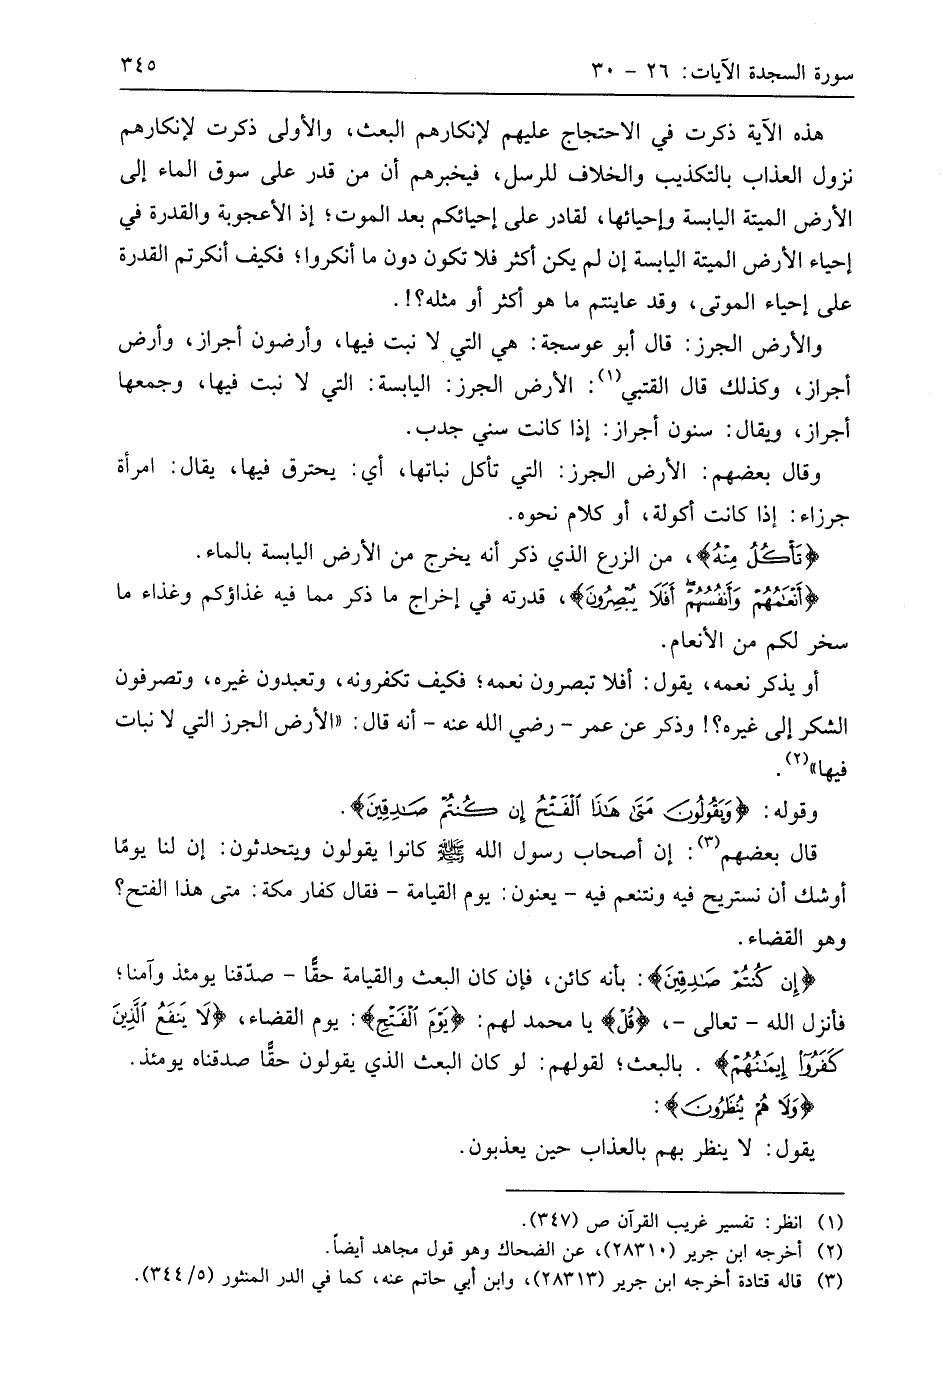 سورة السجدة الآيات: ٢٦ - ٣٠
٣٤٥
هذه الآية ذكرت في الاحتجاج عليهم لإنكارهم البعث، والأولى ذكرت لإنكارهم
نزول العذاب بالتكذيب والخلاف للرسل، فيخبرهم أن من قدر على سوق الماء إلى
الأرض الميتة اليابسة وإحيائها، لقادر على إحيائكم بعد الموت؛ إذ الأعجوبة والقدرة في
إحياء الأرض الميتة اليابسة إن لم يكن أكثر فلا تكون دون ما أنكروا؛ فكيف أنكرتم القدرة
على إحياء الموتى، وقد عاينتم ما هو أكثر أو مثله؟!.
والأرض الجرز: قال أبو عوسجة: هي التي لا نبت فيها، وأرضون أجراز، وأرض
أجراز، وكذلك قال القتبي(١): الأرض الجرز: اليابسة: التي لا نبت فيها، وجمعها
أجراز، ويقال: سنون أجراز: إذا كانت سني جدب.
وقال بعضهم: الأرض الجرز: التي تأكل نباتها، أي: يحترق فيها، يقال: امرأة
جرزاء: إذا كانت أكولة، أو كلام نحوه.
﴿تَأْكُلُ مِنْهُ﴾، من الزرع الذي ذكر أنه يخرج من الأرض اليابسة بالماء.
﴿أَنْعَٰمُهُمْ وَأَنفُسُهُمْ ۖ أَفَلَا يُبْصِرُونَ﴾، قدرته في إخراج ما ذكر مما فيه غذاؤكم وغذاء ما
سخر لكم من الأنعام.
أو يذكر نعمه، يقول: أفلا تبصرون نعمه؛ فكيف تكفرونه، وتعبدون غيره، وتصرفون
الشكر إلى غيره؟! وذكر عن عمر - رضي الله عنه - أنه قال: «الأرض الجرز التي لا نبات
فيها»(٢).
وقوله: ﴿وَيَقُولُونَ مَتَىٰ هَٰذَا ٱلْفَتْحُ إِن كُنتُمْ صَٰدِقِينَ﴾.
قال بعضهم(٣): إن أصحاب رسول الله ﷺ كانوا يقولون ويتحدثون: إن لنا يومًا
أوشك أن نستريح فيه ونتنعم فيه - يعنون: يوم القيامة - فقال كفار مكة: متى هذا الفتح؟
وهو القضاء.
﴿إِن كُنتُمْ صَٰدِقِينَ﴾: بأنه كائن، فإن كان البعث والقيامة حقًّا - صدّقنا يومئذ وآمنا؛
فأنزل الله - تعالى -، ﴿قُلْ﴾ يا محمد لهم: ﴿يَوْمَ ٱلْفَتْحِ﴾: يوم القضاء، ﴿لَا يَنفَعُ ٱلَّذِينَ
كَفَرُوٓا۟ إِيمَٰنُهُمْ﴾ . بالبعث؛ لقولهم: لو كان البعث الذي يقولون حقًّا صدقناه يومئذ.
﴿وَلَا هُمْ يُنظَرُونَ﴾:
يقول: لا ينظر بهم بالعذاب حين يعذبون.
(١) انظر: تفسير غريب القرآن ص (٣٤٧).
(٢) أخرجه ابن جرير (٢٨٣١٠)، عن الضحاك وهو قول مجاهد أيضاً.
(٣) قاله قتادة أخرجه ابن جرير (٢٨٣١٣)، وابن أبي حاتم عنه، كما في الدر المنثور (٣٤٤/٥).